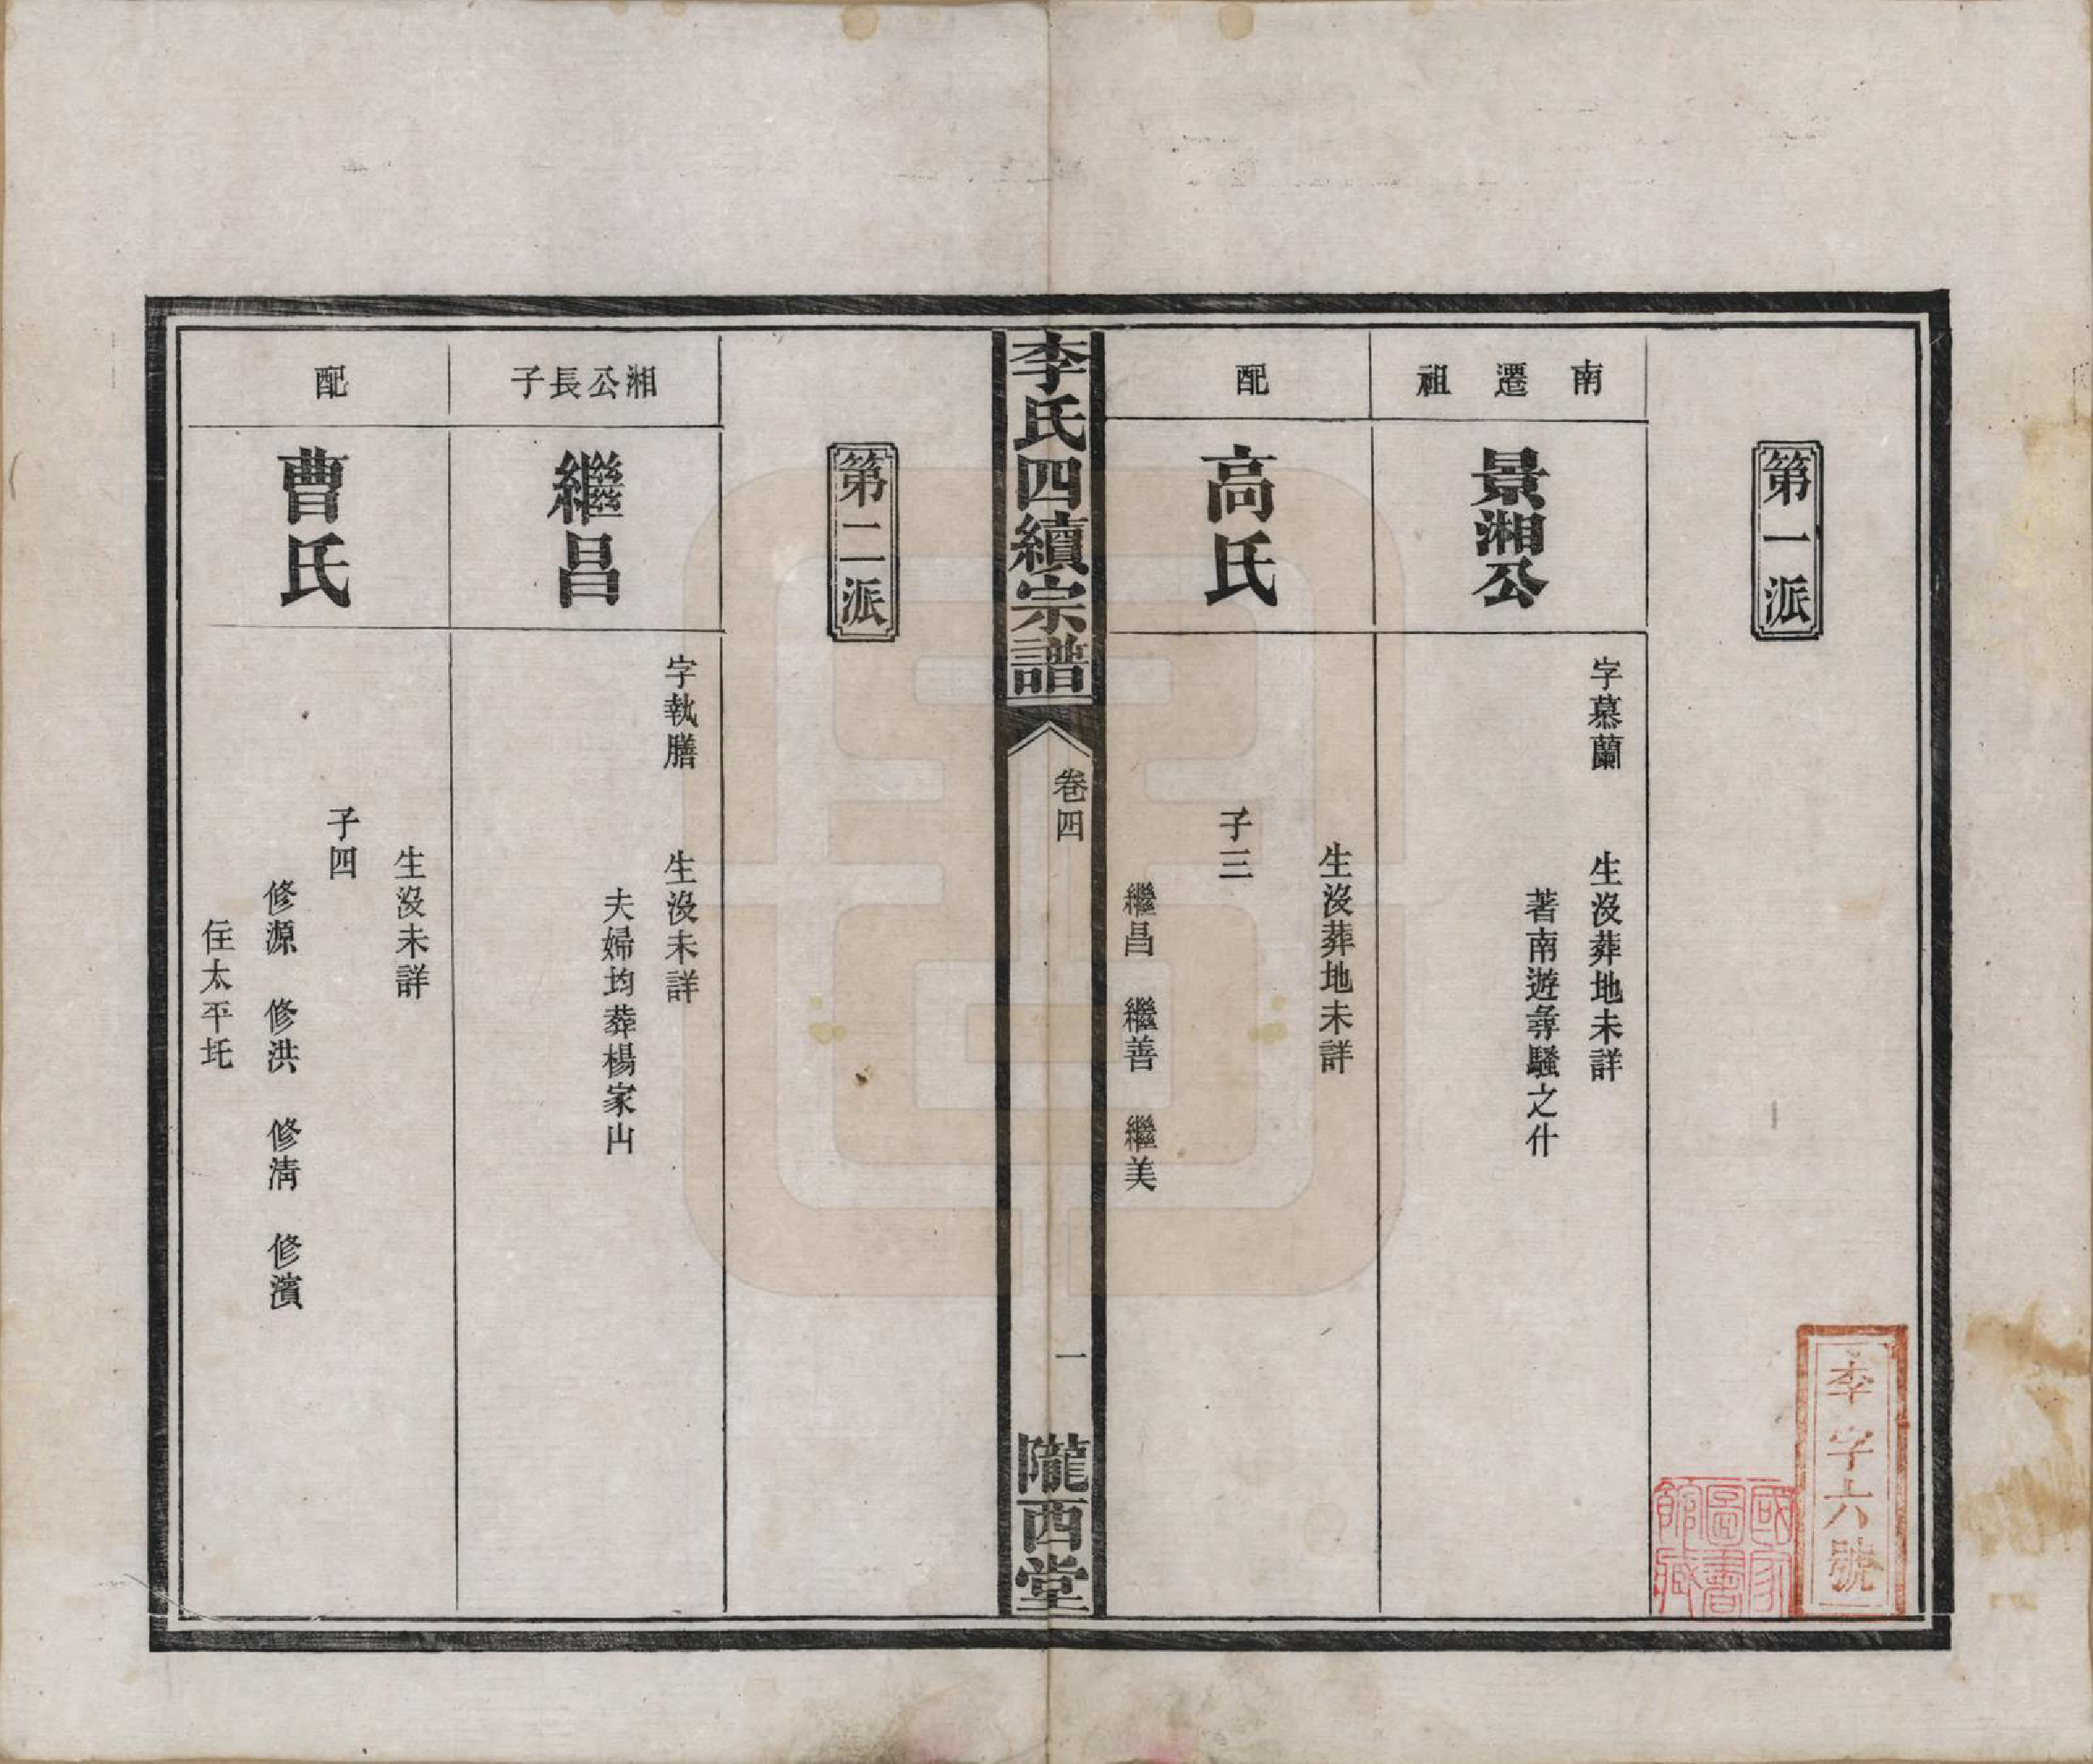 第一派
南遷祖
景湘公
字慕蘭 生沒葬地未詳
著南遊尋騷之什
配
高氏
生沒葬地未詳
子三
繼昌 繼善 繼美
李氏四續宗譜
卷四
一
隴西堂
第二派
湘公長子
繼昌
字執膳 生沒未詳
夫婦均葬楊家山
配
曹氏
生沒未詳
子四
修源 修洪 修清 修濱
住太平圫
李字六號
國家
圖書
館藏